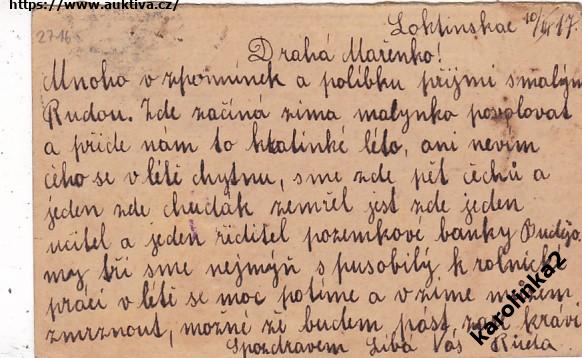 https://www.auktiva.cz/
27-16
Loktinskae 10/III 17.
Drahá Mařenko!
Mnoho vzpomínek a políbku přijmi s malým
Rudou. Zde začíná zima malynko povolovat
a přide nám to kratinké léto, ani nevím
čeho se v létě chytnu, sme zde pět čechů a
jeden zde chudák zemřel jest zde jeden
učitel a jeden řiditel pozemkové banky Budějo.
my tří sme nejmýň spusobilý k rolnické
práci v létě se moc potíme a v zimě
zmrznout, možné že budem pást zase krávi
Spozdravem Líbá Vás Růda.
karolinka2